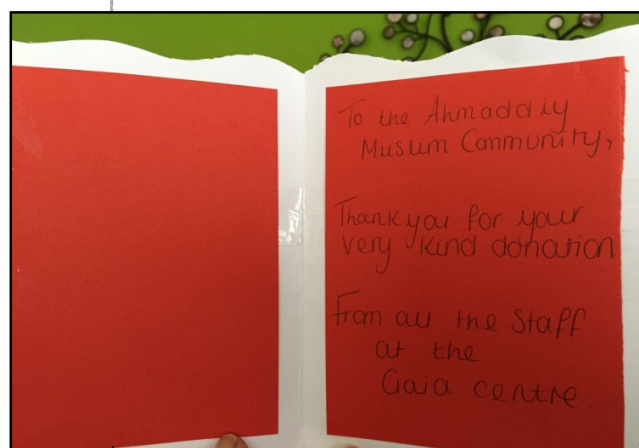 To the Ahmaddiy
Muslim Community,
Thank you for your
very kind donation
From all the Staff
at the
Gaia centre.